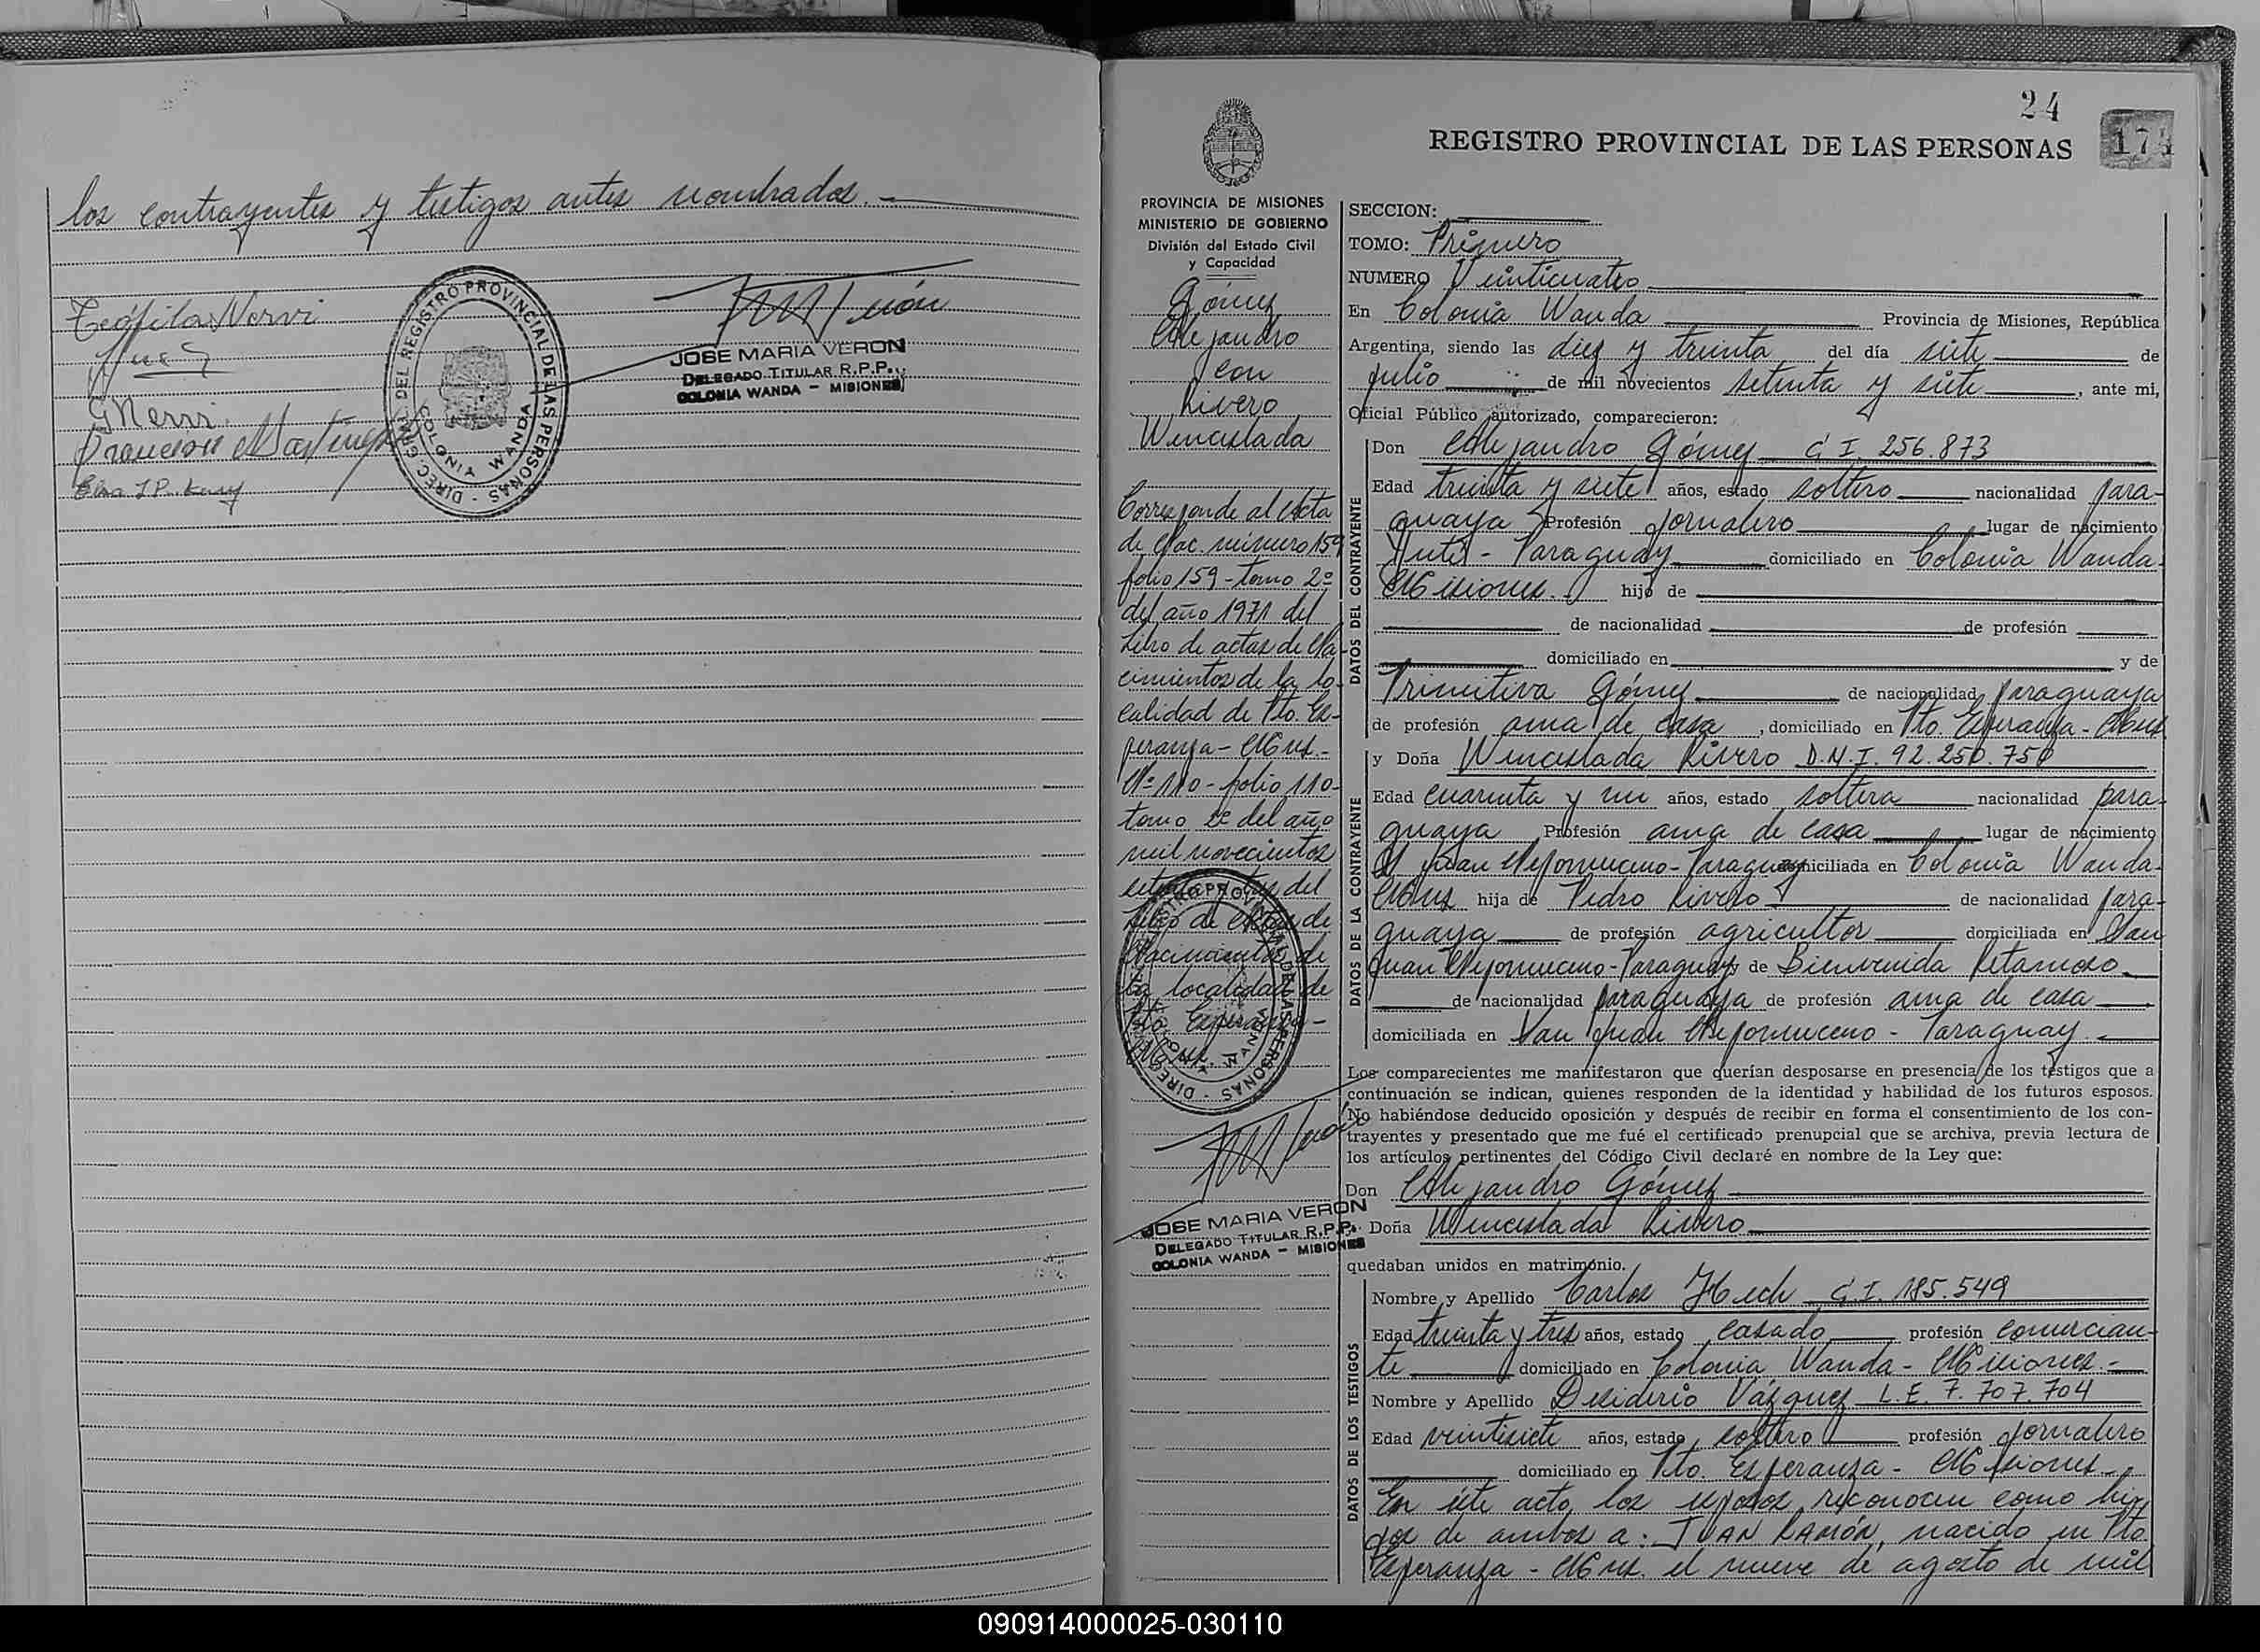 los contrayentes y testigos antes nombrados.
Teófila Nervi
GNervi.
Francisco Martínez
DIREC. GRAL. DEL REGISTRO PROVINCIAL DE LAS PERSONAS
COLONIA WANDA
JOSE MARIA VERON
DELEGADO TITULAR R.P.P.
COLONIA WANDA - MISIONES
24
174
REGISTRO PROVINCIAL DE LAS PERSONAS
PROVINCIA DE MISIONES
MINISTERIO DE GOBIERNO
División del Estado Civil
y Capacidad
Gómez
Alejandro
con
Rivero
Wenceslada
Corresponde al Acta
de Nac. número 159
folio 159 - tomo 2º
del año 1971 del
Libro de actas de Na-
cimientos de la lo-
calidad de Pto. Es-
peranza - Mnes. -
Nº 110 - folio 110-
tomo 2º del año
mil novecientos
setenta y tres del
Libro de Actas de
Nacimientos de
la localidad de
Pto. Esperanza -
Mnes. -
JOSE MARIA VERON
DELEGADO TITULAR R.P.P.
COLONIA WANDA - MISIONES
SECCION:
TOMO: Primero
NUMERO Veinticuatro
En Colonia Wanda Provincia de Misiones, República
Argentina, siendo las diez y treinta del día siete de
julio de mil novecientos setenta y siete, ante mi,
Oficial Público autorizado, comparecieron:
DATOS DEL CONTRAYENTE
Don Alejandro Gómez C I. 256.873
Edad treinta y siete años, estado soltero nacionalidad para-
guaya Profesión Jornalero lugar de nacimiento
Yuti - Paraguay domiciliado en Colonia Wanda-
Misiones. hijo de
de nacionalidad de profesión
domiciliado en y de
Primitiva Gómez de nacionalidad paraguaya
de profesión ama de casa, domiciliado en Pto. Esperanza - Mnes
DATOS DE LA CONTRAYENTE
y Doña Wenceslada Rivero D.N.I. 92.250.750
Edad cuarenta y un años, estado soltera nacionalidad para-
guaya Profesión ama de casa lugar de nacimiento
S. Juan Nepomuceno - Paraguay domiciliada en Colonia Wanda-
Mnes hija de Pedro Rivero de nacionalidad para-
guaya de profesión agricultor domiciliada en San
Juan Nepomuceno - Paraguay y de Bienvenida Retamozo
de nacionalidad paraguaya de profesión ama de casa
domiciliada en San Juan Nepomuceno - Paraguay.
Los comparecientes me manifestaron que querían desposarse en presencia de los testigos que a
continuación se indican, quienes responden de la identidad y habilidad de los futuros esposos.
No habiéndose deducido oposición y después de recibir en forma el consentimiento de los con-
trayentes y presentado que me fué el certificado prenupcial que se archiva, previa lectura de
los artículos pertinentes del Código Civil declaré en nombre de la Ley que:
Don Alejandro Gómez
Doña Wenceslada Rivero
quedaban unidos en matrimonio.
DATOS DE LOS TESTIGOS
Nombre y Apellido Carlos Hech C.I. 185.549
Edad treinta y tres años, estado casado profesión comercian-
te domiciliado en Colonia Wanda - Misiones. -
Nombre y Apellido Desiderio Vázquez L.E. 7.707.704
Edad veintisiete años, estado soltero profesión Jornalero
domiciliado en Pto. Esperanza - Misiones -
En éste acto los esposos reconocen como hi-
jos de ambos a: JUAN RAMÓN, nacido en Pto.
Esperanza - Mnes. el nueve de agosto de mil
090914000025-030110